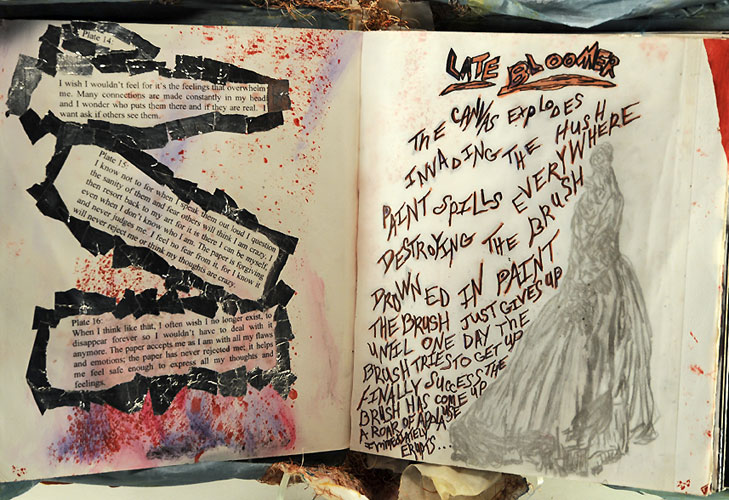 Plate 14:
I wish I wouldn't feel for it's the feelings that overwhelm
me. Many connections are made constantly in my head
and I wonder who puts them there and if they are real. I
want ask if others see them.
Plate 15:
I know not to for when I speak them out loud I question
the sanity of them and fear others will think I am crazy. I
then resort back to my art for it is there I can be myself
even when I don't know who I am. The paper is forgiving
and never judges me. I feel no fear from it, for I know it
will never reject me or think my thoughts are crazy.
Plate 16:
When I think like that, I often wish I no longer exist, to
disappear forever so I wouldn't have to deal with it
anymore. The paper accepts me as I am with all my flaws
and emotions; the paper has never rejected me, it helps
me feel safe enough to express all my thoughts and
feelings.
LATE BLOOMER
THE CANVAS EXPLODES
INVADING THE HUSH
PAINT SPILLS EVERYWHERE
DESTROYING THE BRUSH
DROWNED IN PAINT
THE BRUSH JUST GIVES UP
UNTIL ONE DAY THE
BRUSH TRIES TO GET UP
FINALLY SUCCESS THE
BRUSH HAS COME UP
A ROAR OF APPLAUSE
IMMEDIATELY
ERUPTS...